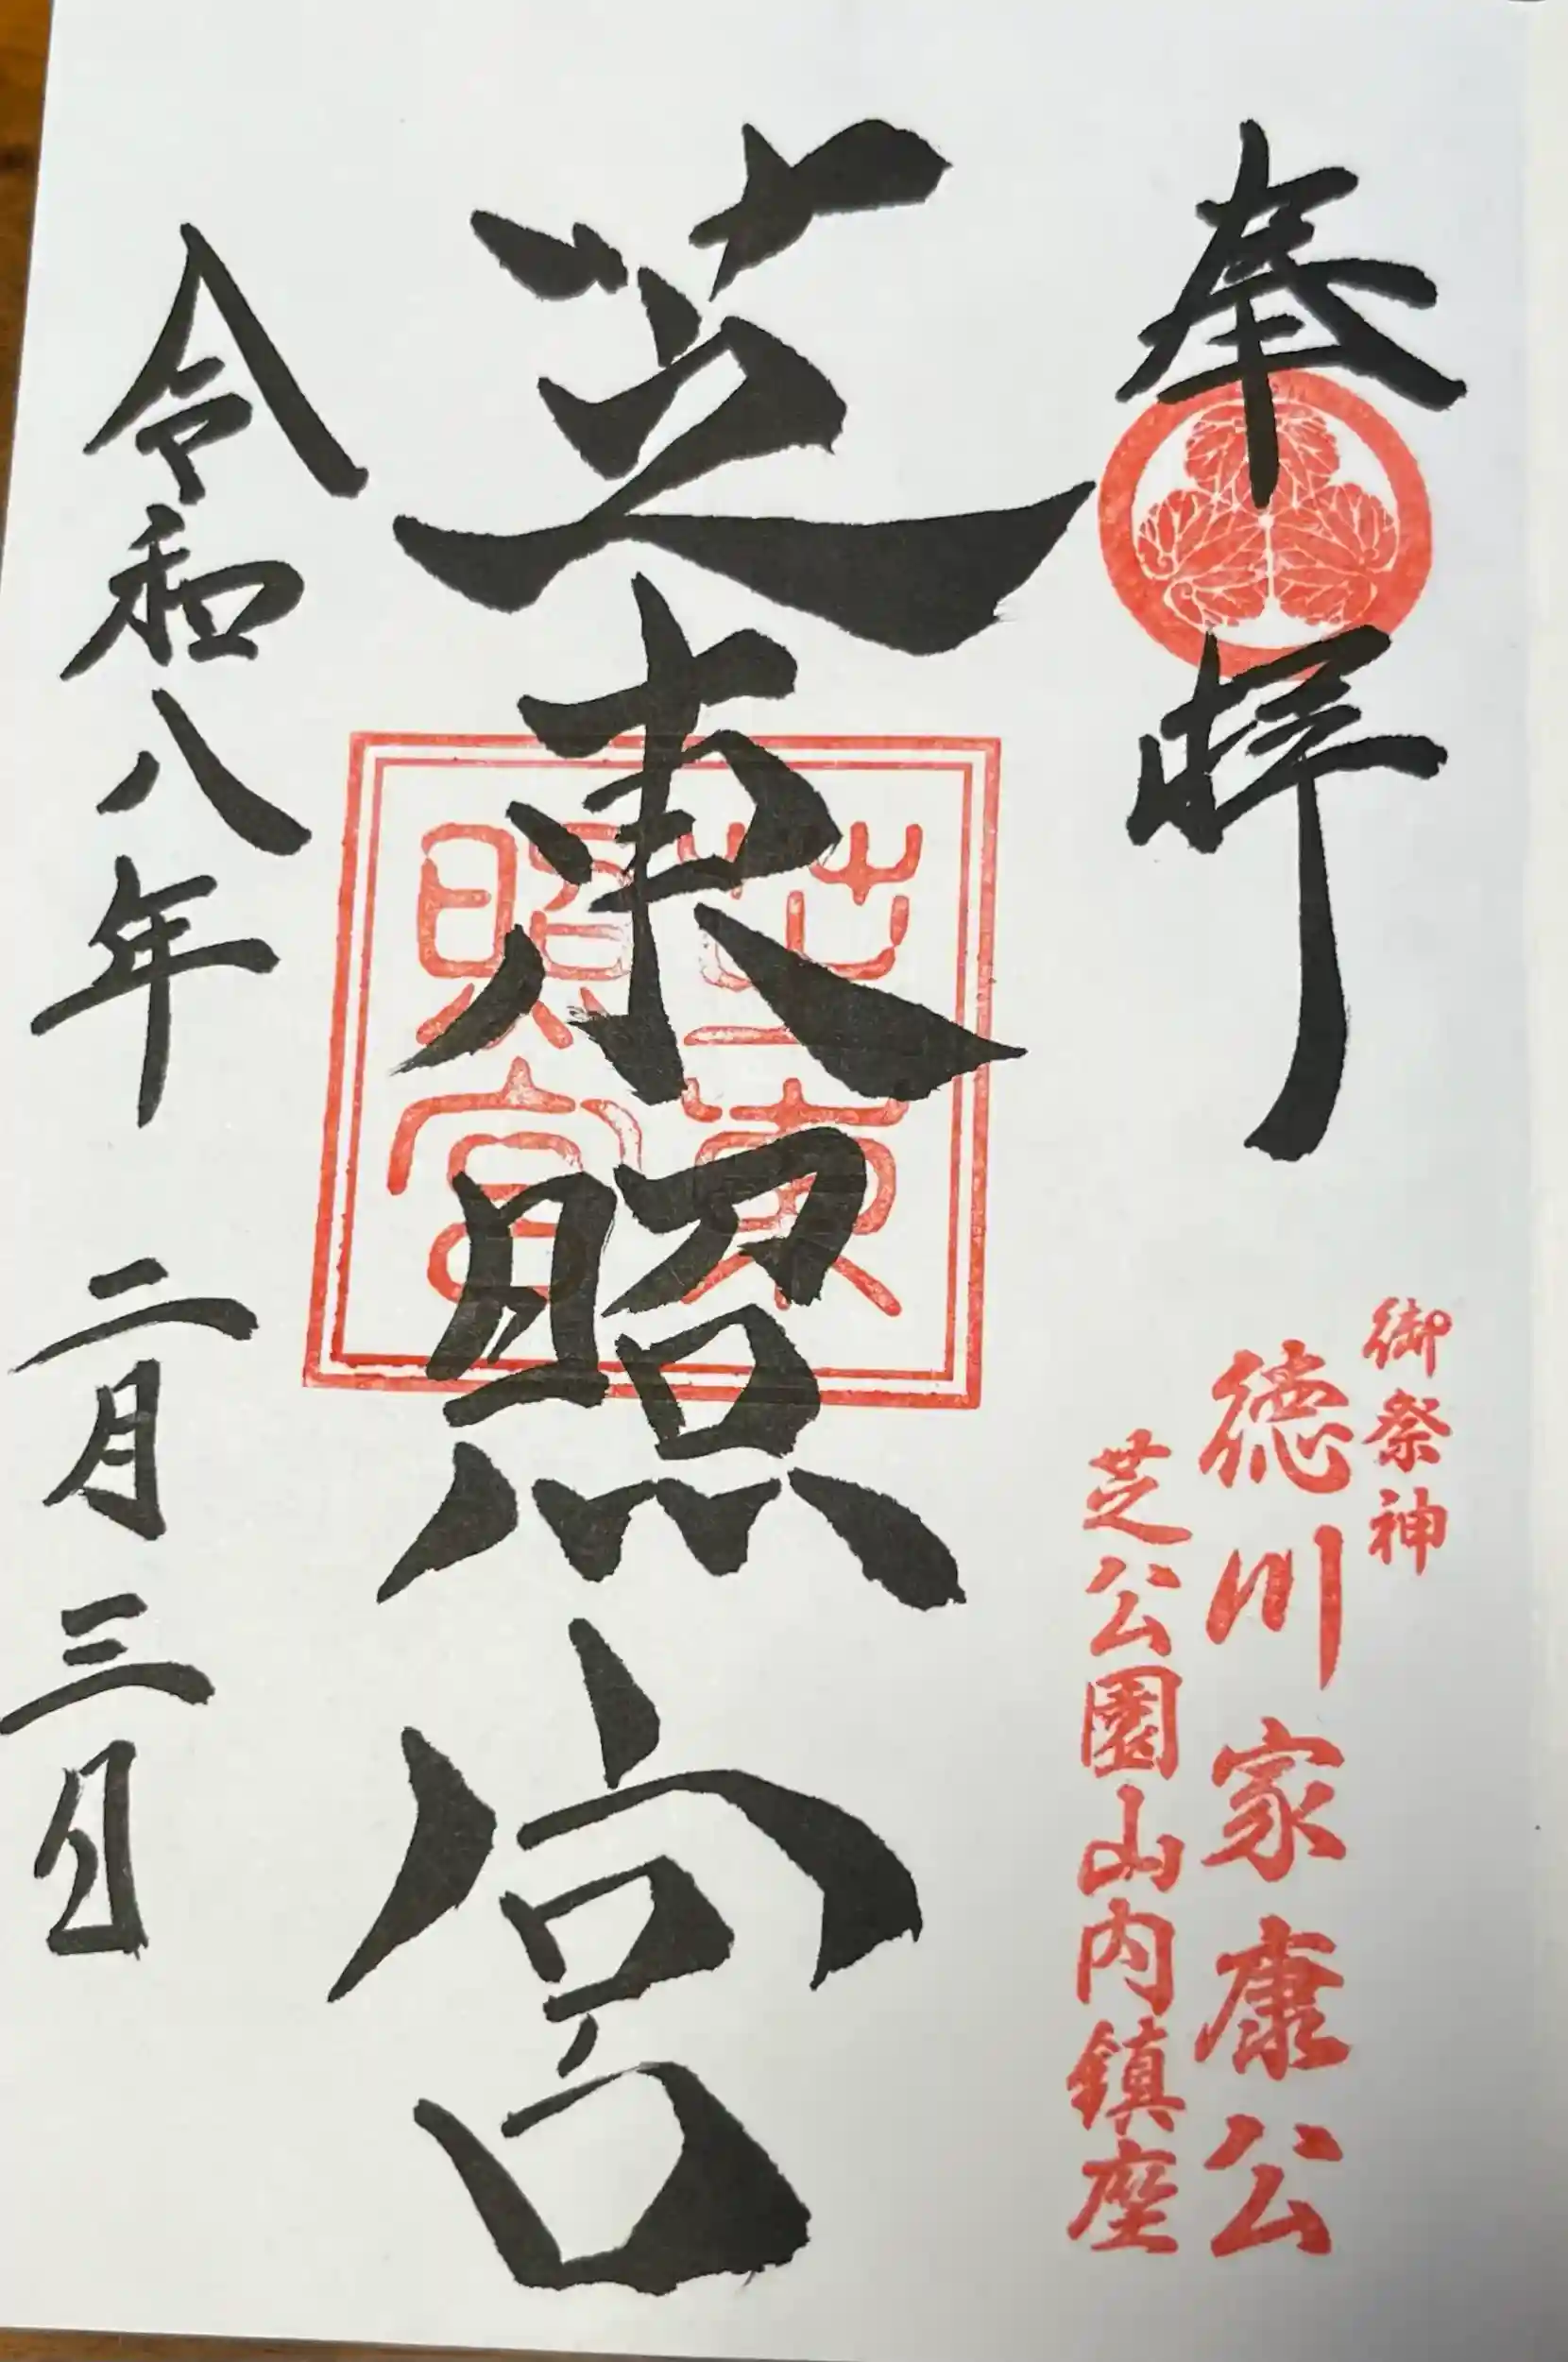 奉拝
御祭神
徳川家康公
芝公園山内鎮座
芝東照宮
芝東照宮
令和八年二月三日